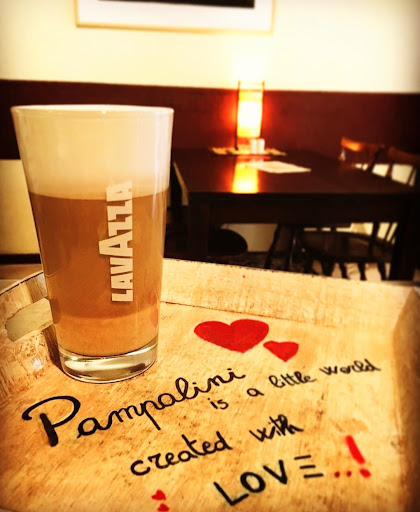 LAVAZZA
Pampalini
is a little world
created with
LOVE..!